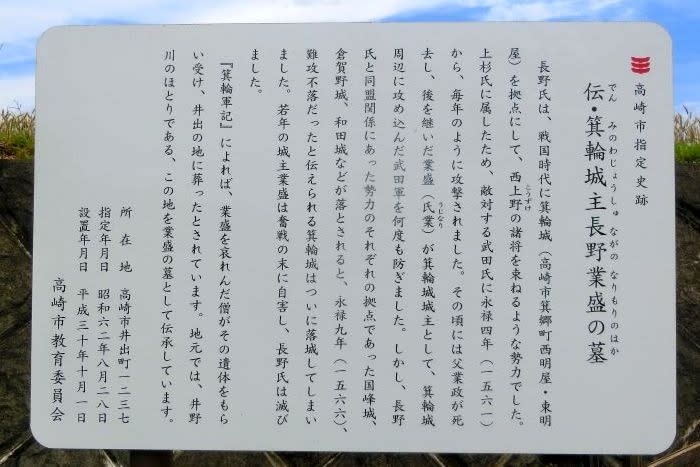 高崎市指定史跡
伝・箕輪城主長野業盛の墓
でん みのわじょうしゅ ながの なりもりのはか
長野氏は、戦国時代に箕輪城（高崎市箕郷町西明屋・東明
屋）を拠点にして、西上野の諸将を束ねるような勢力でした。
こうずけ
上杉氏に属したため、敵対する武田氏に永禄四年（一五六一）
から、毎年のように攻撃されました。その頃には父業政が死
去し、後を継いだ業盛（氏業）が箕輪城城主として、箕輪城
うじなり
周辺に攻め込んだ武田軍を何度も防ぎました。しかし、長野
氏と同盟関係にあった勢力のそれぞれの拠点であった国峰城、
倉賀野城、和田城などが落とされると、永禄九年（一五六六）、
難攻不落だったと伝えられる箕輪城はついに落城してしまい
ました。若年の城主業盛は奮戦の末に自害し、長野氏は滅び
ました。
『箕輪軍記』によれば、業盛を哀れんだ僧がその遺体をもら
い受け、井出の地に葬ったとされています。地元では、井野
川のほとりである、この地を業盛の墓として伝承しています。
所在地 高崎市井出町一二三七
指定年月日 昭和六二年八月二八日
設置年月日 平成三十年十月一日
高崎市教育委員会